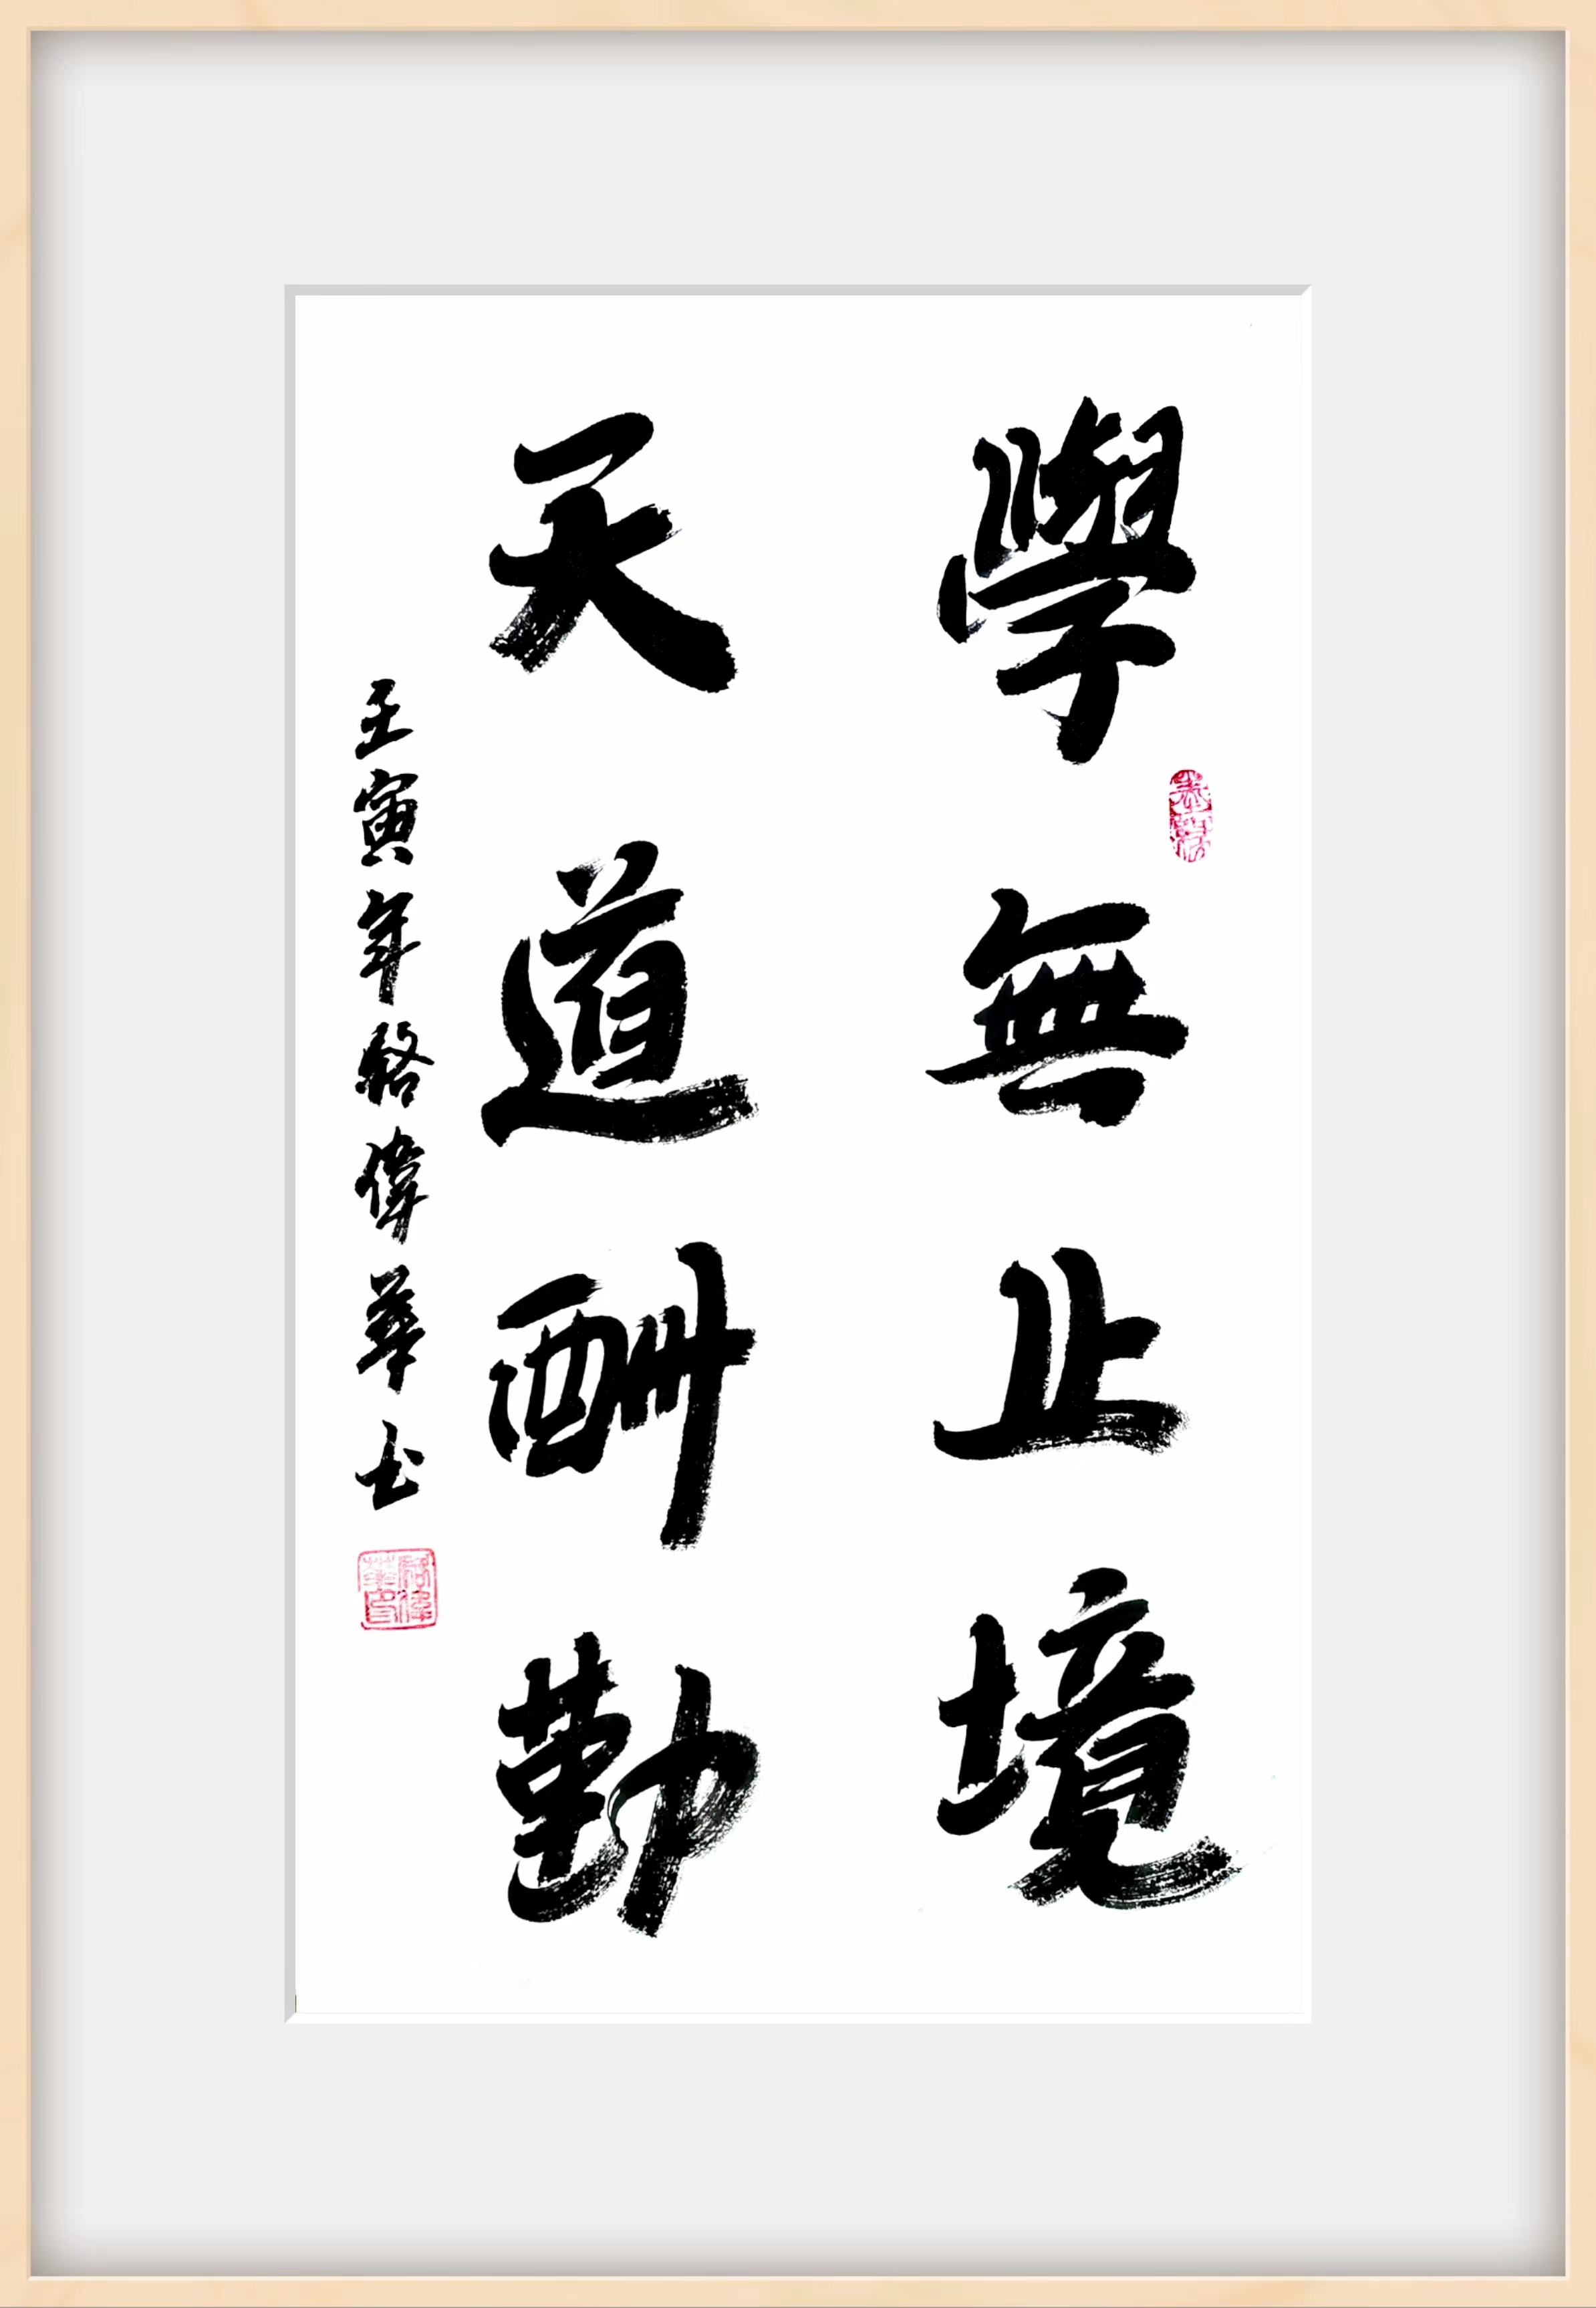 學無止境
天道酬勤
壬寅年 偉華书